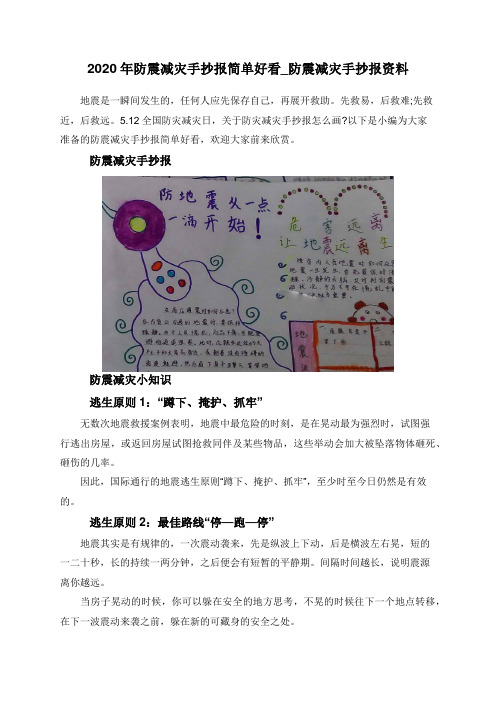 2020年防震减灾手抄报简单好看_防震减灾手抄报资料
地震是一瞬间发生的，任何人应先保存自己，再展开救助。先救易，后救难;先救
近，后救远。5.12全国防灾减灾日，关于防灾减灾手抄报怎么画?以下是小编为大家
准备的防震减灾手抄报简单好看，欢迎大家前来欣赏。
防震减灾手抄报
防地震从一点
一滴开始！
危害远离
让地震远离生
地震
防震减灾小知识
逃生原则1：“蹲下、掩护、抓牢”
无数次地震救援案例表明，地震中最危险的时刻，是在晃动最为强烈时，试图强
行逃出房屋，或返回房屋试图抢救同伴及某些物品，这些举动会加大被坠落物体砸死、
砸伤的几率。
因此，国际通行的地震逃生原则“蹲下、掩护、抓牢”，至少时至今日仍然是有效
的。
逃生原则2：最佳路线“停—跑—停”
地震其实是有规律的，一次震动袭来，先是纵波上下动，后是横波左右晃，短的
一二十秒，长的持续一两分钟，之后便会有短暂的平静期。间隔时间越长，说明震源
离你越远。
当房子晃动的时候，你可以躲在安全的地方思考，不晃的时候往下一个地点转移，
在下一波震动来袭之前，躲在新的可藏身的安全之处。